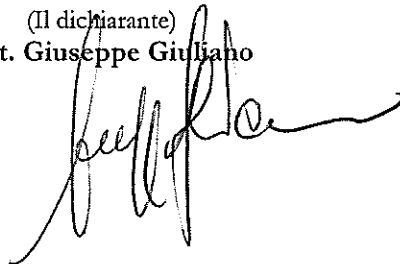 (Il dichiarante)
t. Giuseppe Giuliano